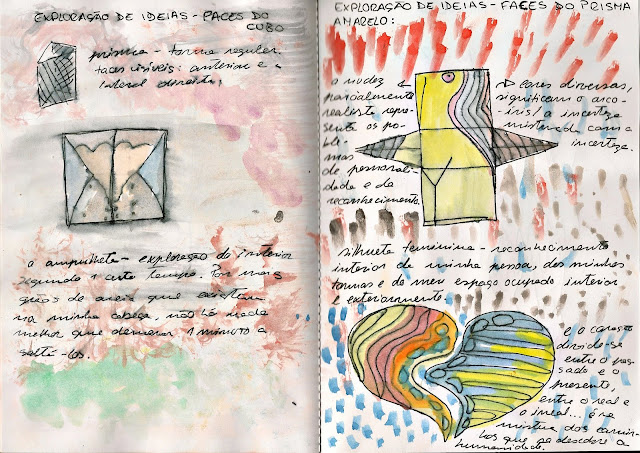 EXPLORAÇÃO DE IDEIAS - FACES DO
CUBO
prisma - forma regular.
faces visíveis: anterior e a
lateral direita;
a ampulheta - exploração do interior
segundo certo tempo. Por mais
grãos de areia que existam
na minha cabeça, não há nada
melhor que demorar 1 minuto a
soltá-los.
EXPLORAÇÃO DE IDEIAS - FACES DO PRISMA
AMARELO:
a nudez
parcialmente
realista repre-
senta os pro-
ble-
mas
de personali-
dade e de
reconhecimento.
Cores diversas,
significam o arco-
íris/a incerteza
misturada com a
incerteza.
silhueta feminina - reconhecimento
interior de minha pessoa, das minhas
formas e do meu espaço ocupado interior
e exteriormente
e o coração
divide-se
entre o pas-
sado e o
presente,
entre o real e
o irreal... é na
mistura dos camin-
hos que se descobre a
humanidade.